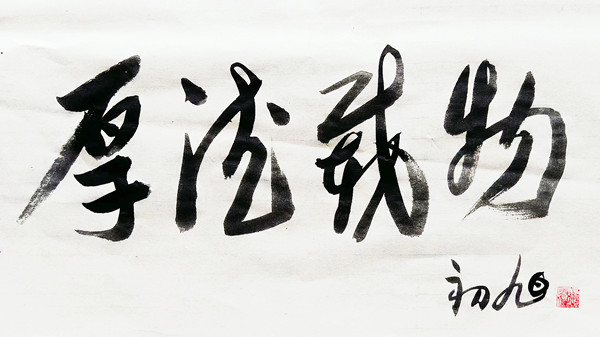 厚德载物
初旭